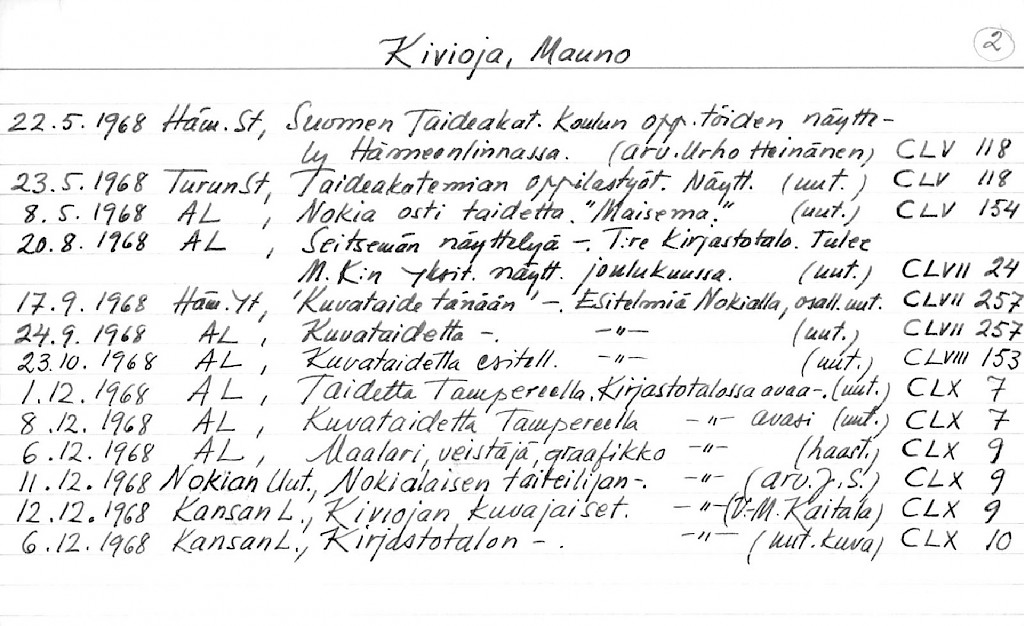 Kivioja, Mauno 2
22.5.1968 Häm.St, Suomen Taideakat. Koulun opp.töiden näytte-
ly Hämeenlinnassa. (arv. Urho Heinänen) CLV 118
23.5.1968 TurunSt, Taideakatemian oppilastyöt. Näytt. (uut.) CLV 118
8.5.1968 AL, Nokia osti taidetta. "Maisema." (uut.) CLV 154
20.8.1968 AL, Seitsemän näyttelyä -. T:re Kirjastotalo. Tulee
M.K:n yksit. näytt. joulukuussa. (uut.) CLVII 24
17.9.1968 Häm.Yt, 'Kuvataide tänään' -. Esitelmiä Nokialla, osall. uut. CLVII 257
24.9.1968 AL, Kuvataidetta -. -"- (uut.) CLVII 257
23.10.1968 AL, Kuvataidetta esitell. -"- (uut.) CLVIII 153
1.12.1968 AL, Taidetta Tampereella. Kirjastotalossa avaa-. (uut.) CLX 7
8.12.1968 AL, Kuvataidetta Tampereella -"- avasi (uut.) CLX 7
6.12.1968 AL, Maalari, veistäjä, graafikko -"- (haast.) CLX 9
11.12.1968 Nokian Uut., Nokialaisen taiteilijan-. -"- (arv. J.S.) CLX 9
12.12.1968 Kansan L., Kiviojan kuvajaiset. -"- (V-M. Kaitala) CLX 9
6.12.1968 Kansan L., Kirjastotalon -. -"- (uut. kuva) CLX 10